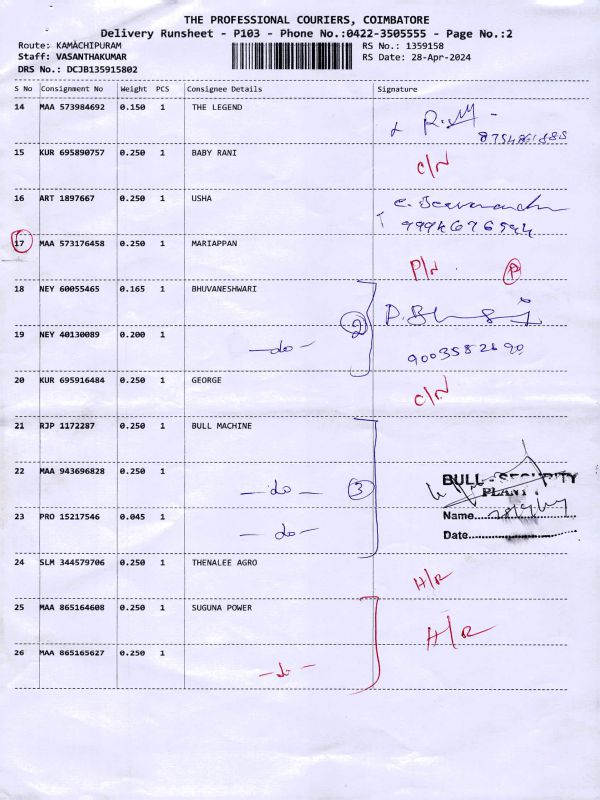 THE PROFESSIONAL COURIERS, COIMBATORE
Delivery Runsheet - P103 - Phone No.:0422-3505555 - Page No.:2
Route: KAMACHIPURAM RS No.: 1359158
Staff: VASANTHAKUMAR RS Date: 28-Apr-2024
DRS No.: DCJB135915802
S No Consignment No Weight PCS Consignee Details Signature
14 MAA 573984692 0.150 1 THE LEGEND
15 KUR 695890757 0.250 1 BABY RANI C/N
16 ART 1897667 0.250 1 USHA
17 MAA 573176458 0.250 1 MARIAPPAN P/N. P
18 NEY 60055465 0.165 1 BHUVANESHWARI
19 NEY 40130089 0.200 1 -do- 2
20 KUR 695916484 0.250 1 GEORGE C/N
21 RJP 1172287 0.250 1 BULL MACHINE
22 MAA 943696828 0.250 1 -do- 3
BULL - SECURITY
PLANT
23 PRO 15217546 0.045 1 -do- Name
Date
24 SLM 344579706 0.250 1 THENALEE AGRO H/R
25 MAA 865164608 0.250 1 SUGUNA POWER H/R
26 MAA 865165627 0.250 1 -do-